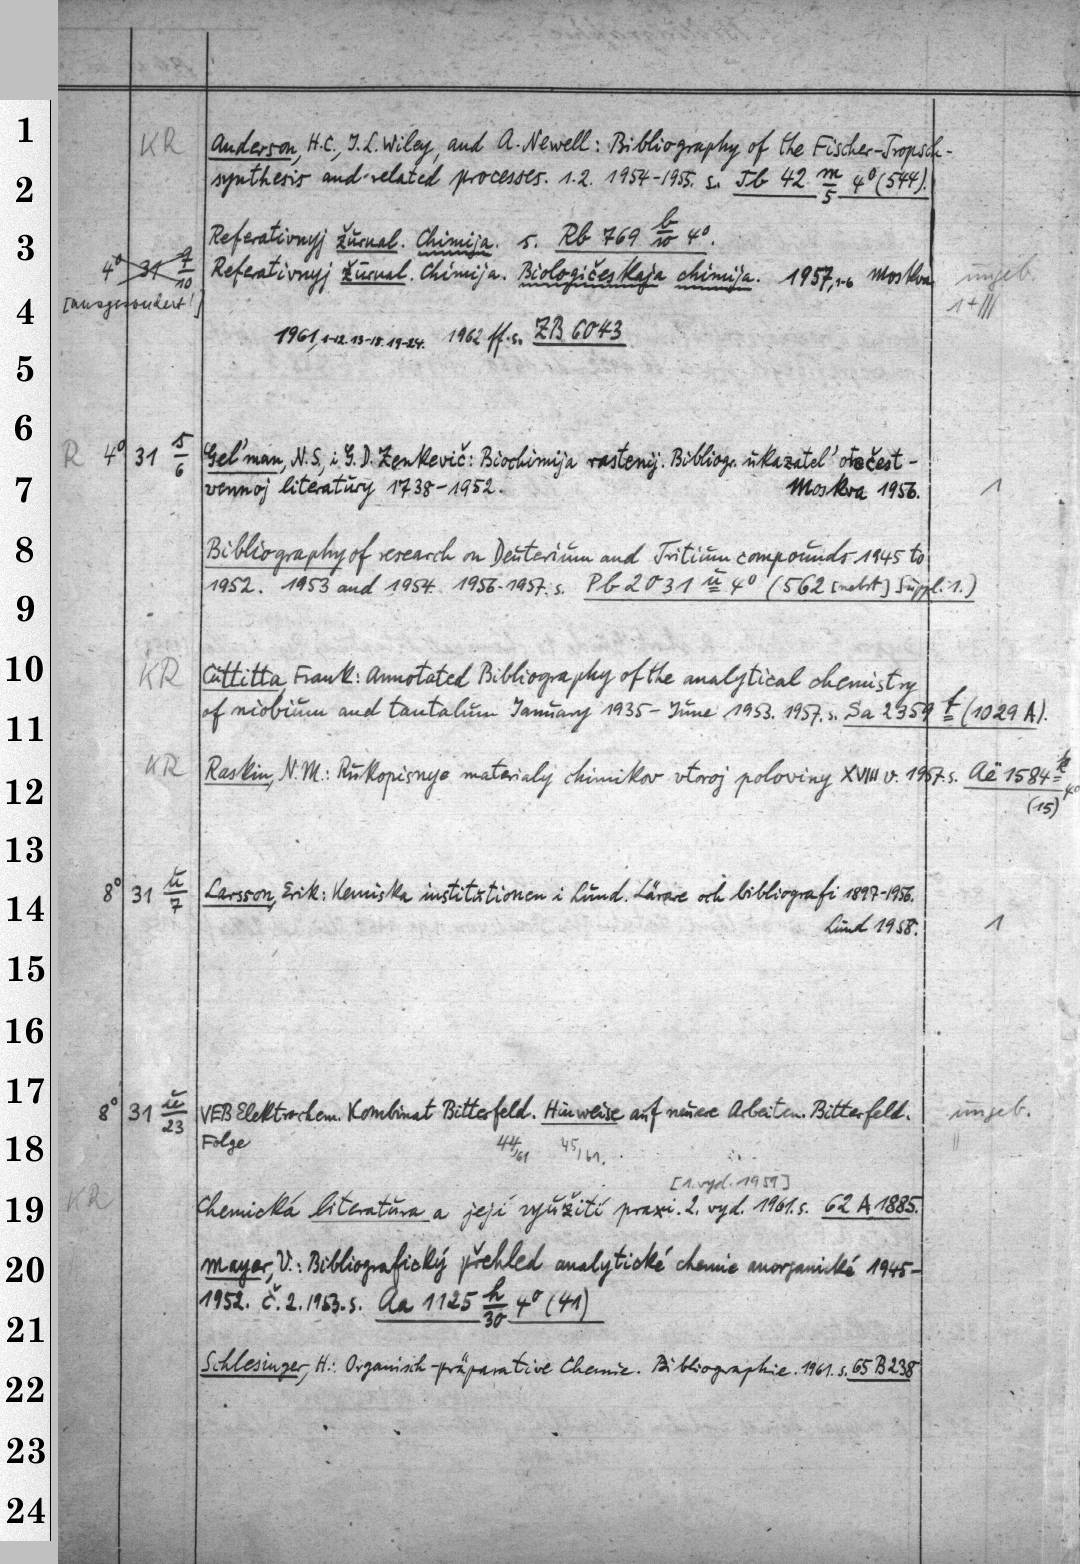 1
KR Anderson, H.C., J.L. Wiley, and A. Newell: Bibliography of the Fischer-Tropsch-
2
synthesis and related processes. 1.2. 1954-1955. s. Jb 42 m/5 4° (544).
3
Referativnyj žurnal. Chimija. s. Rb 769 b/10 4°.
4° 31 7/10 Referativnyj žurnal. Chimija. Biologičeskaja chimija. 1957,1-6 Moskva ungeb.
4
[ausgesondert!] 1+III
1961, 1-12. 13-18. 19-24. 1962 ff. s. ZB 6043
5
6
R 4° 31 5/6 Gel'man, N.S., i G.D. Zenkevič: Biochimija rastenij. Bibliogr. ukazatel' otečest-
7
vennoj literatury 1738-1952. Moskva 1956. 1
8
Bibliography of research on Deuterium and Tritium compounds 1945 to
9
1952. 1953 and 1954. 1956-1957. s. Pb 2031 u 4° (562 [nebst] Suppl. 1.)
10
KR Cuttitta Frank: Annotated Bibliography of the analytical chemistry
11
of niobium and tantalum January 1935 - June 1953. 1957. s. Sa 2359 f (1029 A).
12
KR Raskin, N.M.: Rukopisnye materialy chimikov vtoroj poloviny XVIII v. 1957. s. Aë 1584 k 4°
(15)
13
14
8° 31 u/7 Larsson, Erik: Kemiska institutionen i Lund. Lärare och bibliografi 1897-1956.
Lund 1958. 1
15
16
17
8° 31 u/23 VEB Elektrochem. Kombinat Bitterfeld. Hinweise auf neuere Arbeiten. Bitterfeld. ungeb.
18
Folge 44/61 45/61. ||
[1. vyd. 1959]
19
KR Chemická literatura a její využití praxi. 2. vyd. 1961. s. 62 A 1885.
20
Mayer, V.: Bibliografický přehled analytické chemie anorganické 1945-
21
1952. č. 2. 1953. s. Aa 1125 h/30 4° (41)
22
Schlesinger, H.: Organisch-präparative Chemie. Bibliographie. 1961. s. 65 B 238
23
24